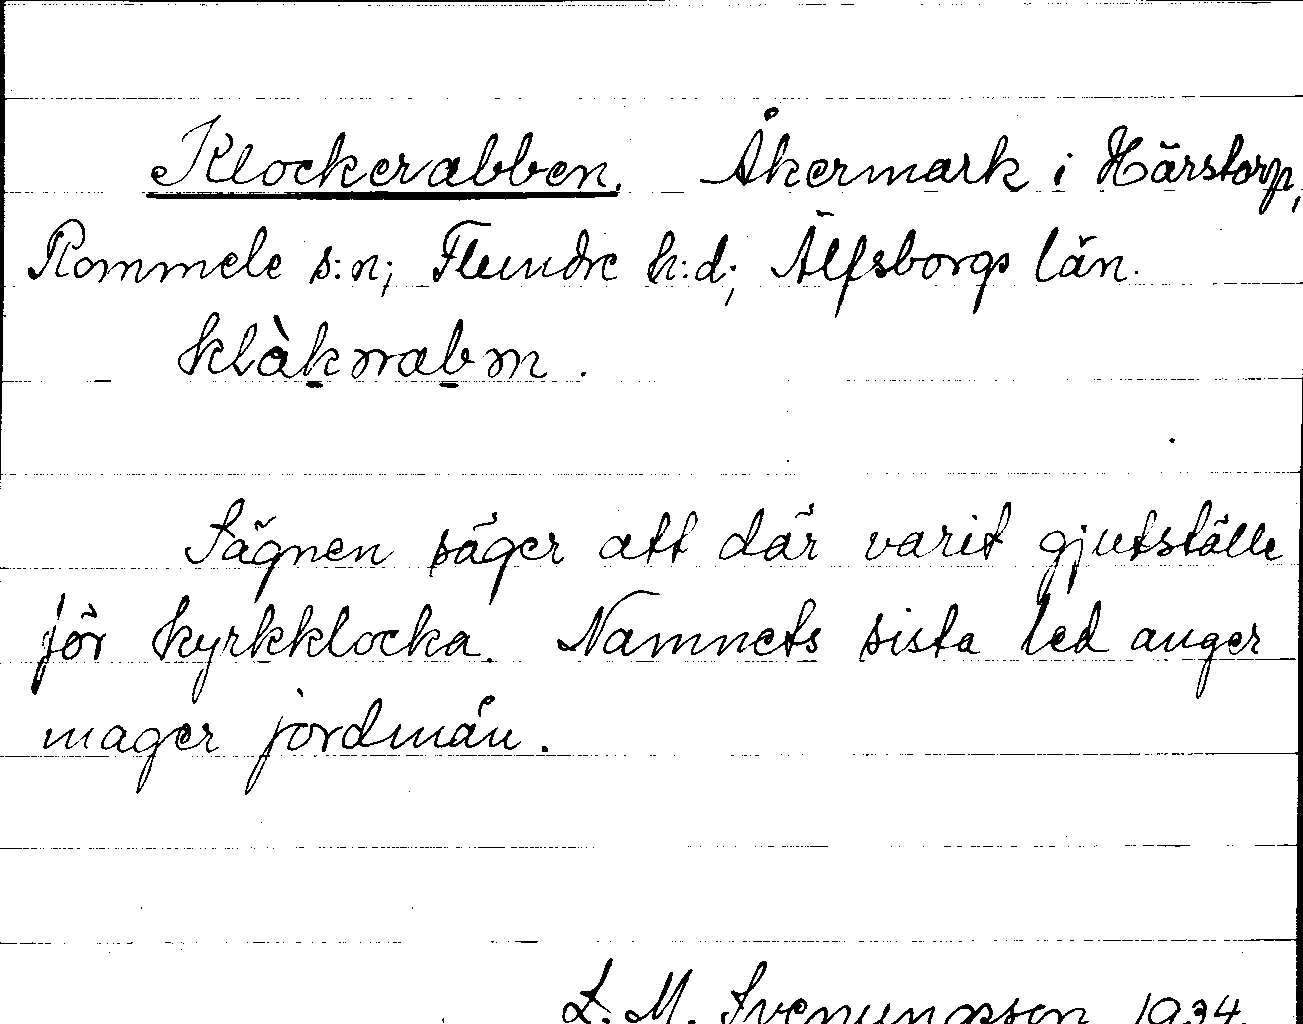 Klockerabben. Åkermark i Härstorp,
Rommele s:n; Flundre h:d; Älfsborgs län.
klàkrrabm.
Sägnen säger att där varit gjutställe
för kyrkklocka. Namnets sista led anger
mager jordmån.
L. M. Svenungsson 1934.